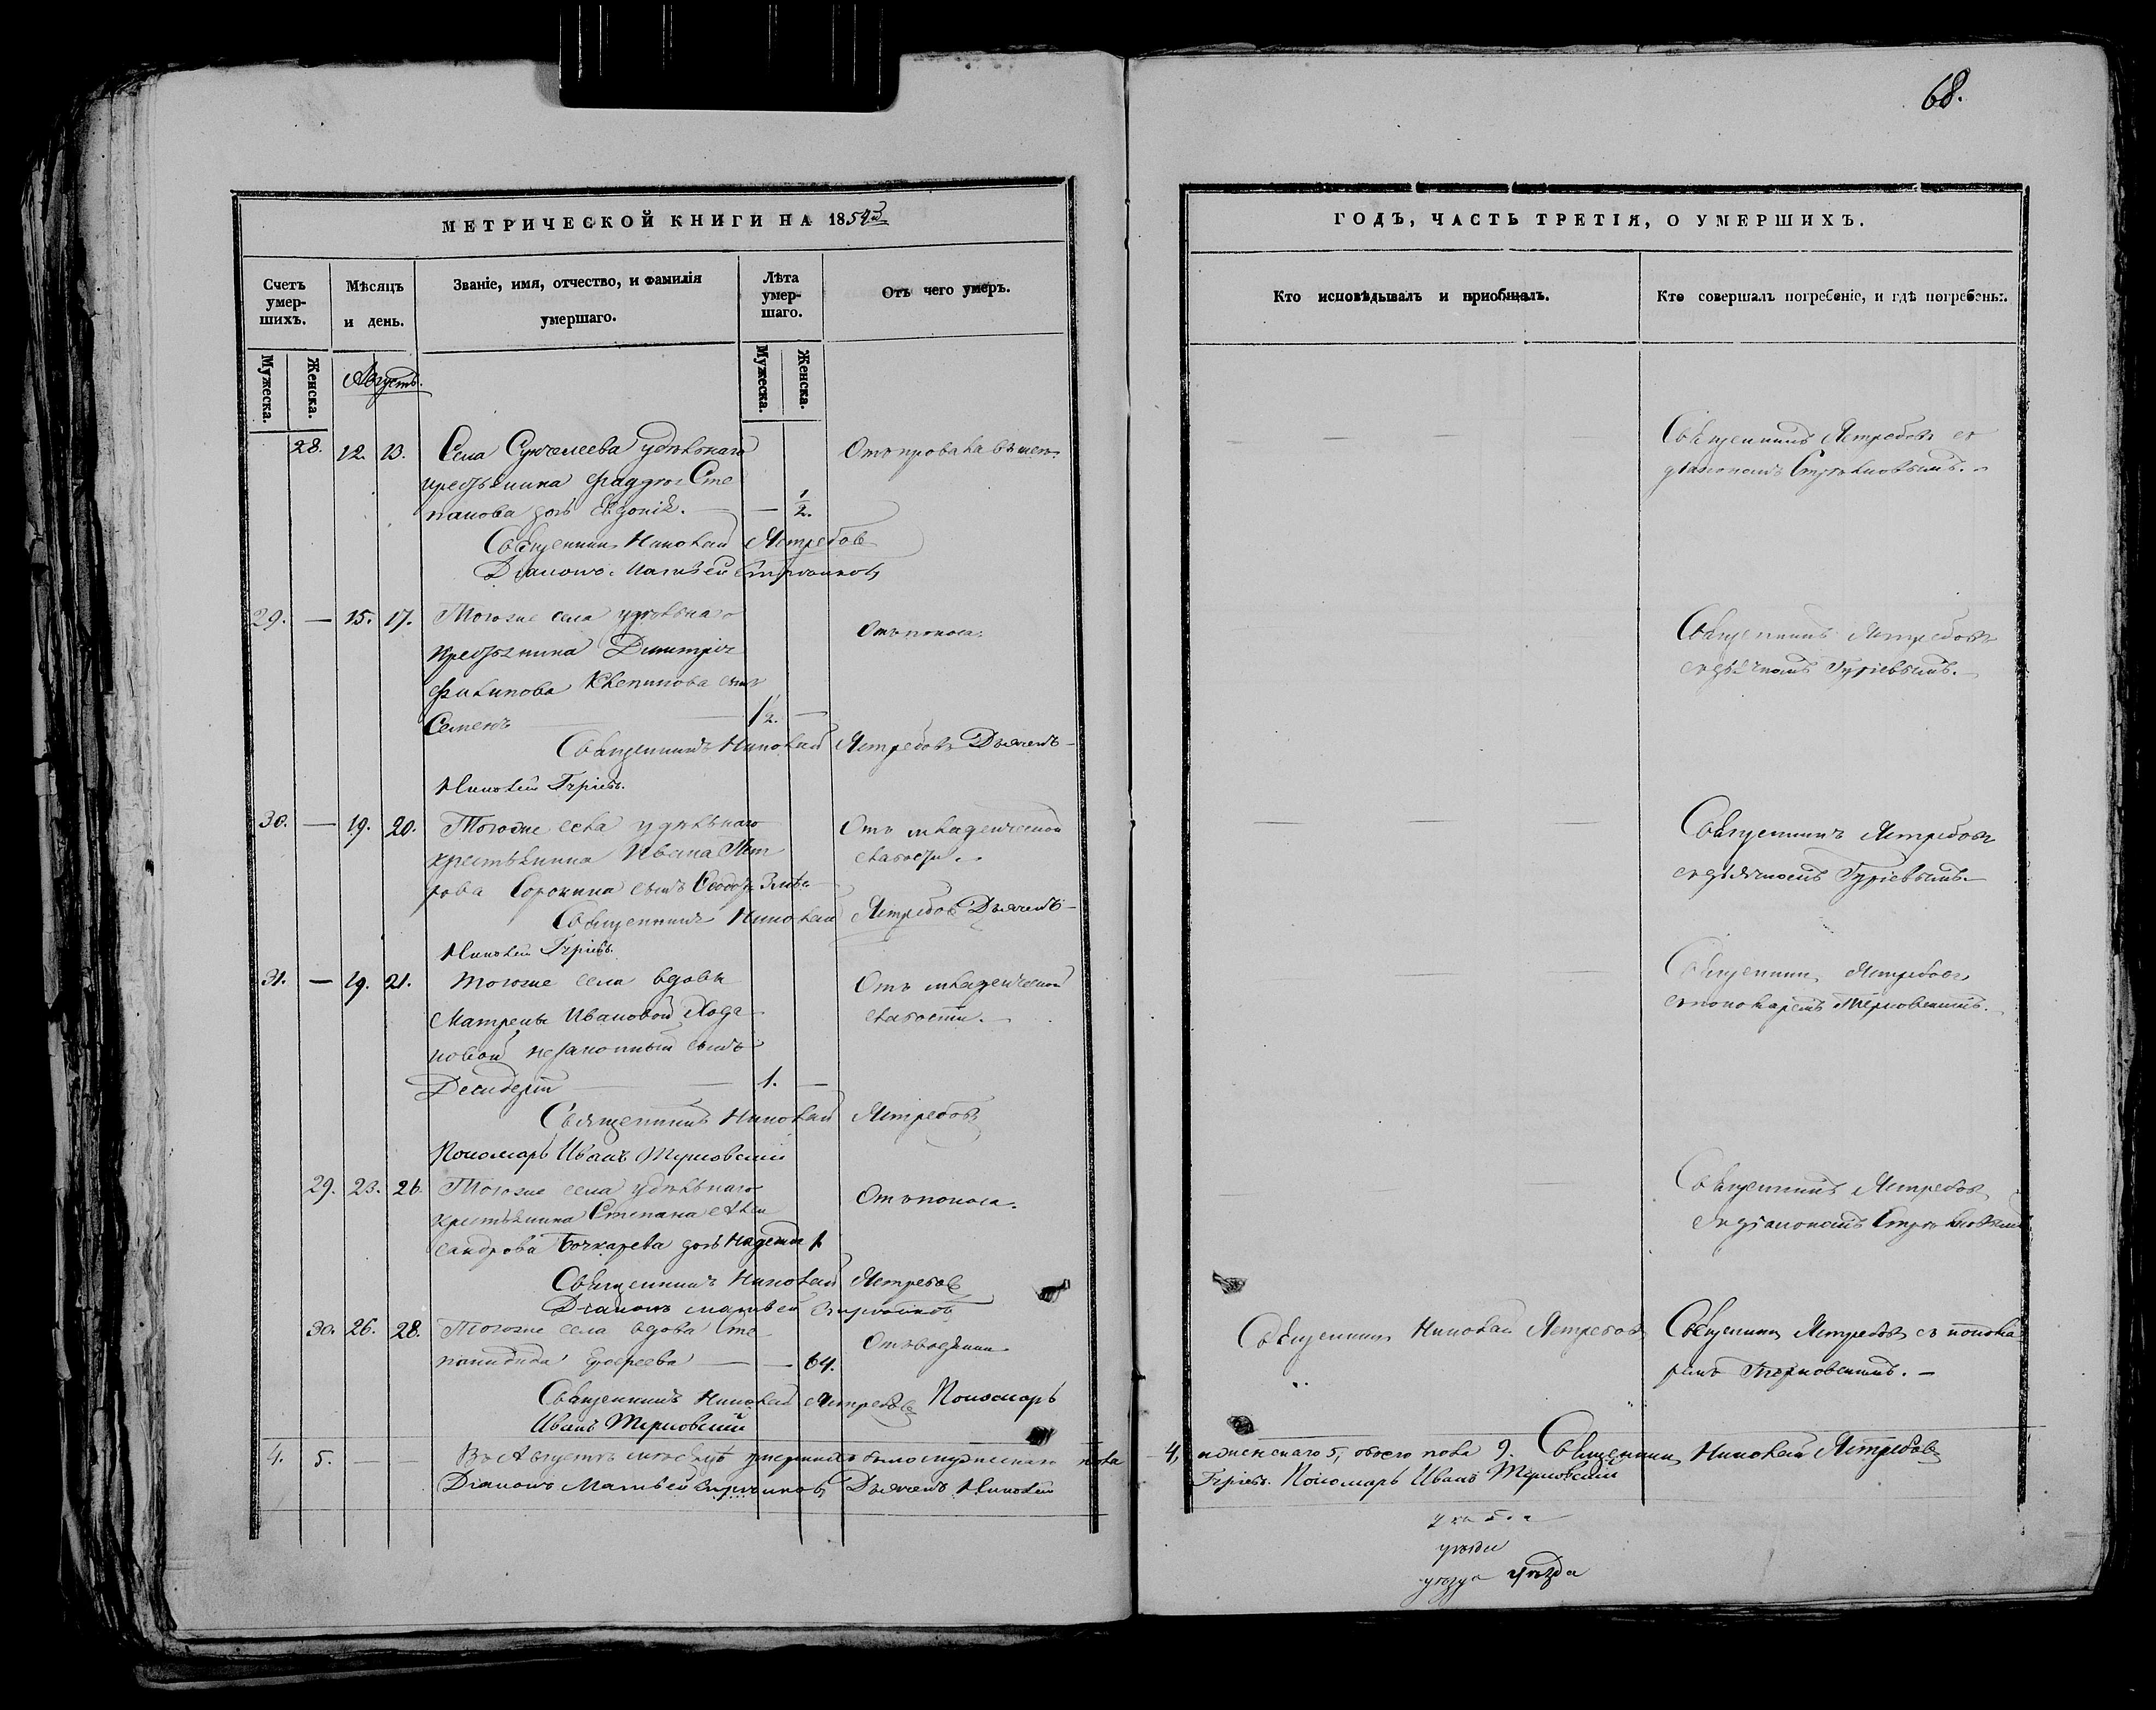 68.
МЕТРИЧЕСКОЙ КНИГИ НА 1854й
Счетъ умер-шихъ.
Мѣсяцъ и день.
Званіе, имя, отчество, и фамилія умершаго.
Лѣта умер-шаго.
Отъ чего умеръ.
Мужеска. Женска.
Мужеска. Женска.
Августъ.
28. 12. 13. Села Сунчелеева удѣльнаго Отъ
крестьянина Фаддея Сте
панова дочь Евдокія. — — 1/2.
Священникъ Николай Ястребовъ
Діаконъ Матвей
29. — 15. 17. Тогоже села удѣльнаго Отъ поноса.
крестьянина Димитрія
Филипова сынъ
Семенъ — — 1/2. —
Священникъ Николай Ястребовъ Дьячекъ
Николай Гуріевъ.
30. — 19. 20. Тогоже села удѣльнаго Отъ младенческой
крестьянина Ивана Пет слабости.
рова Сорокина сынъ Ѳеодоръ
Священникъ Николай Ястребовъ Дьячекъ
Николай Гуріевъ.
31. — 19. 21. Тогоже села вдовы Отъ младенческой
Матрены Ивановой Хода слабости.
новой незаконный сынъ
Десидерій — — 1. —
Священникъ Николай Ястребовъ
Пономарь Иванъ Терновскій
29. 23. 26. Тогоже села удѣльнаго Отъ поноса.
крестьянина Степана Алек
сандрова Бочкарева дочь Надежда 1
Священникъ Николай Ястребовъ
Діаконъ Матвей
30. 26. 28. Тогоже села вдова Сте
панида Андреева — — 64.
Священникъ Николай Ястребовъ Пономарь
Иванъ Терновскій
4. 5. — — Въ Августѣ мѣсяцѣ умершихъ было мужескаго пола
Діаконъ Матвей Дьячекъ Николай
ГОДЪ, ЧАСТЬ ТРЕТІЯ, О УМЕРШИХЪ.
Кто исповѣдывалъ и пріобщалъ.
Кто совершалъ погребеніе, и гдѣ погребены.
— — — — Священникъ Ястребовъ съ
діакономъ
Священникъ Ястребовъ
съ дьячкомъ Гуріевымъ.
— — — Священникъ Ястребовъ
съ дьячкомъ Гуріевымъ.
— — Священникъ Ястребовъ
съ пономаремъ Терновскимъ.
— Священникъ Ястребовъ
съ діакономъ
Священникъ Николай Ястребовъ Священникъ Ястребовъ съ понома
ремъ Терновскимъ. —
4, и женскаго 5, обоего пола 9. Священникъ Николай Ястребовъ
Гуріевъ. Пономарь Иванъ Терновскій
уѣзда